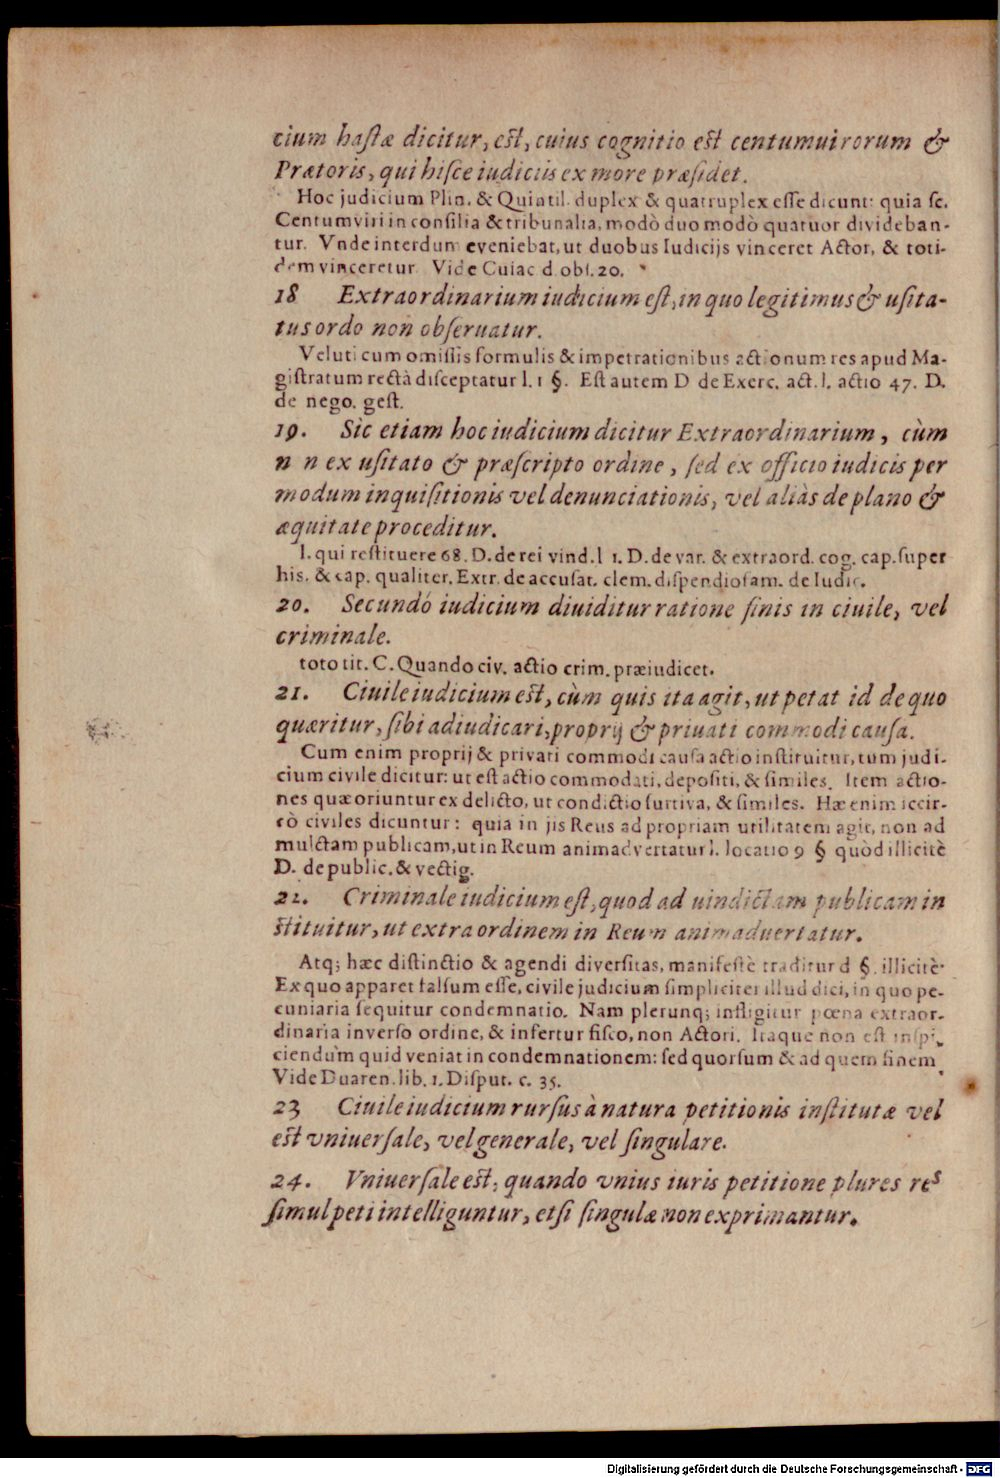 cium hastæ dicitur, est, cuius cognitio est centumuirorum &
Prætoris, qui hisce iudiciis ex more præsidet.
Hoc judicium Plin. & Quintil. duplex & quatruplex esse dicunt: quia sc.
Centumviri in consilia & tribunalia, modò duo modò quatuor divideban-
tur. Vnde interdum eveniebat, ut duobus Iudicijs vinceret Actor, & toti-
dem vinceretur. Vide Cuiac d. obs. 20.
18 Extraordinarium iudicium est, in quo legitimus & usita-
tus ordo non obseruatur.
Veluti cum omissis formulis & impetrationibus actionum res apud Ma-
gistratum rectà disceptatur l. 1 §. Est autem D de Exerc. act. l. actio 47. D.
de nego. gest.
19. Sic etiam hoc iudicium dicitur Extraordinarium, cùm
n n ex usitato & præscripto ordine, sed ex officio iudicis per
modum inquisitionis vel denunciationis, vel aliàs de plano &
æquitate proceditur.
l. qui restituere 68. D. de rei vind. l 1. D. de var. & extraord. cog. cap. super
his. & cap. qualiter. Extr. de accusat. clem. dispendiosam. de Iudic.
20. Secundó iudicium diuiditur ratione finis in ciuile, vel
criminale.
toto tit. C. Quando civ. actio crim. præiudicet.
21. Ciuile iudicium est, cùm quis ita agit, ut petat id de quo
quæritur, sibi adiudicari, proprij & priuati commodi causa.
Cum enim proprij & privati commodi causa actio instituitur, tum judi-
cium civile dicitur: ut est actio commodati, depositi, & similes. Item actio-
nes quæ oriuntur ex delicto, ut condictio furtiva, & similes. Hæ enim iccir-
cò civiles dicuntur: quia in jis Reus ad propriam utilitatem agit, non ad
mulctam publicam, ut in Reum animadvertatur l. locatio 9 § quòd illicitè
D. de public. & vectig.
22. Criminale iudicium est, quod ad uindictam publicam in
stituitur, ut extra ordinem in Reum animaduertatur.
Atq; hæc distinctio & agendi diversitas, manifestè traditur d §. illicitè.
Ex quo apparet falsum esse, civile judicium simpliciter illud dici, in quo pe-
cuniaria sequitur condemnatio. Nam plerunq; infligitur pœna extraor-
dinaria inverso ordine, & infertur fisco, non Actori. Itaque non est inspi-
ciendum quid veniat in condemnationem: sed quorsum & ad quem finem.
Vide Duaren. lib. 1. Disput. c. 35.
23 Ciuile iudicium rursus à natura petitionis institutæ vel
est vniuersale, vel generale, vel singulare.
24. Vniuersale est, quando vnius iuris petitione plures res
simul peti intelliguntur, etsi singulæ non exprimantur.
Digitalisierung gefördert durch die Deutsche Forschungsgemeinschaft - DFG